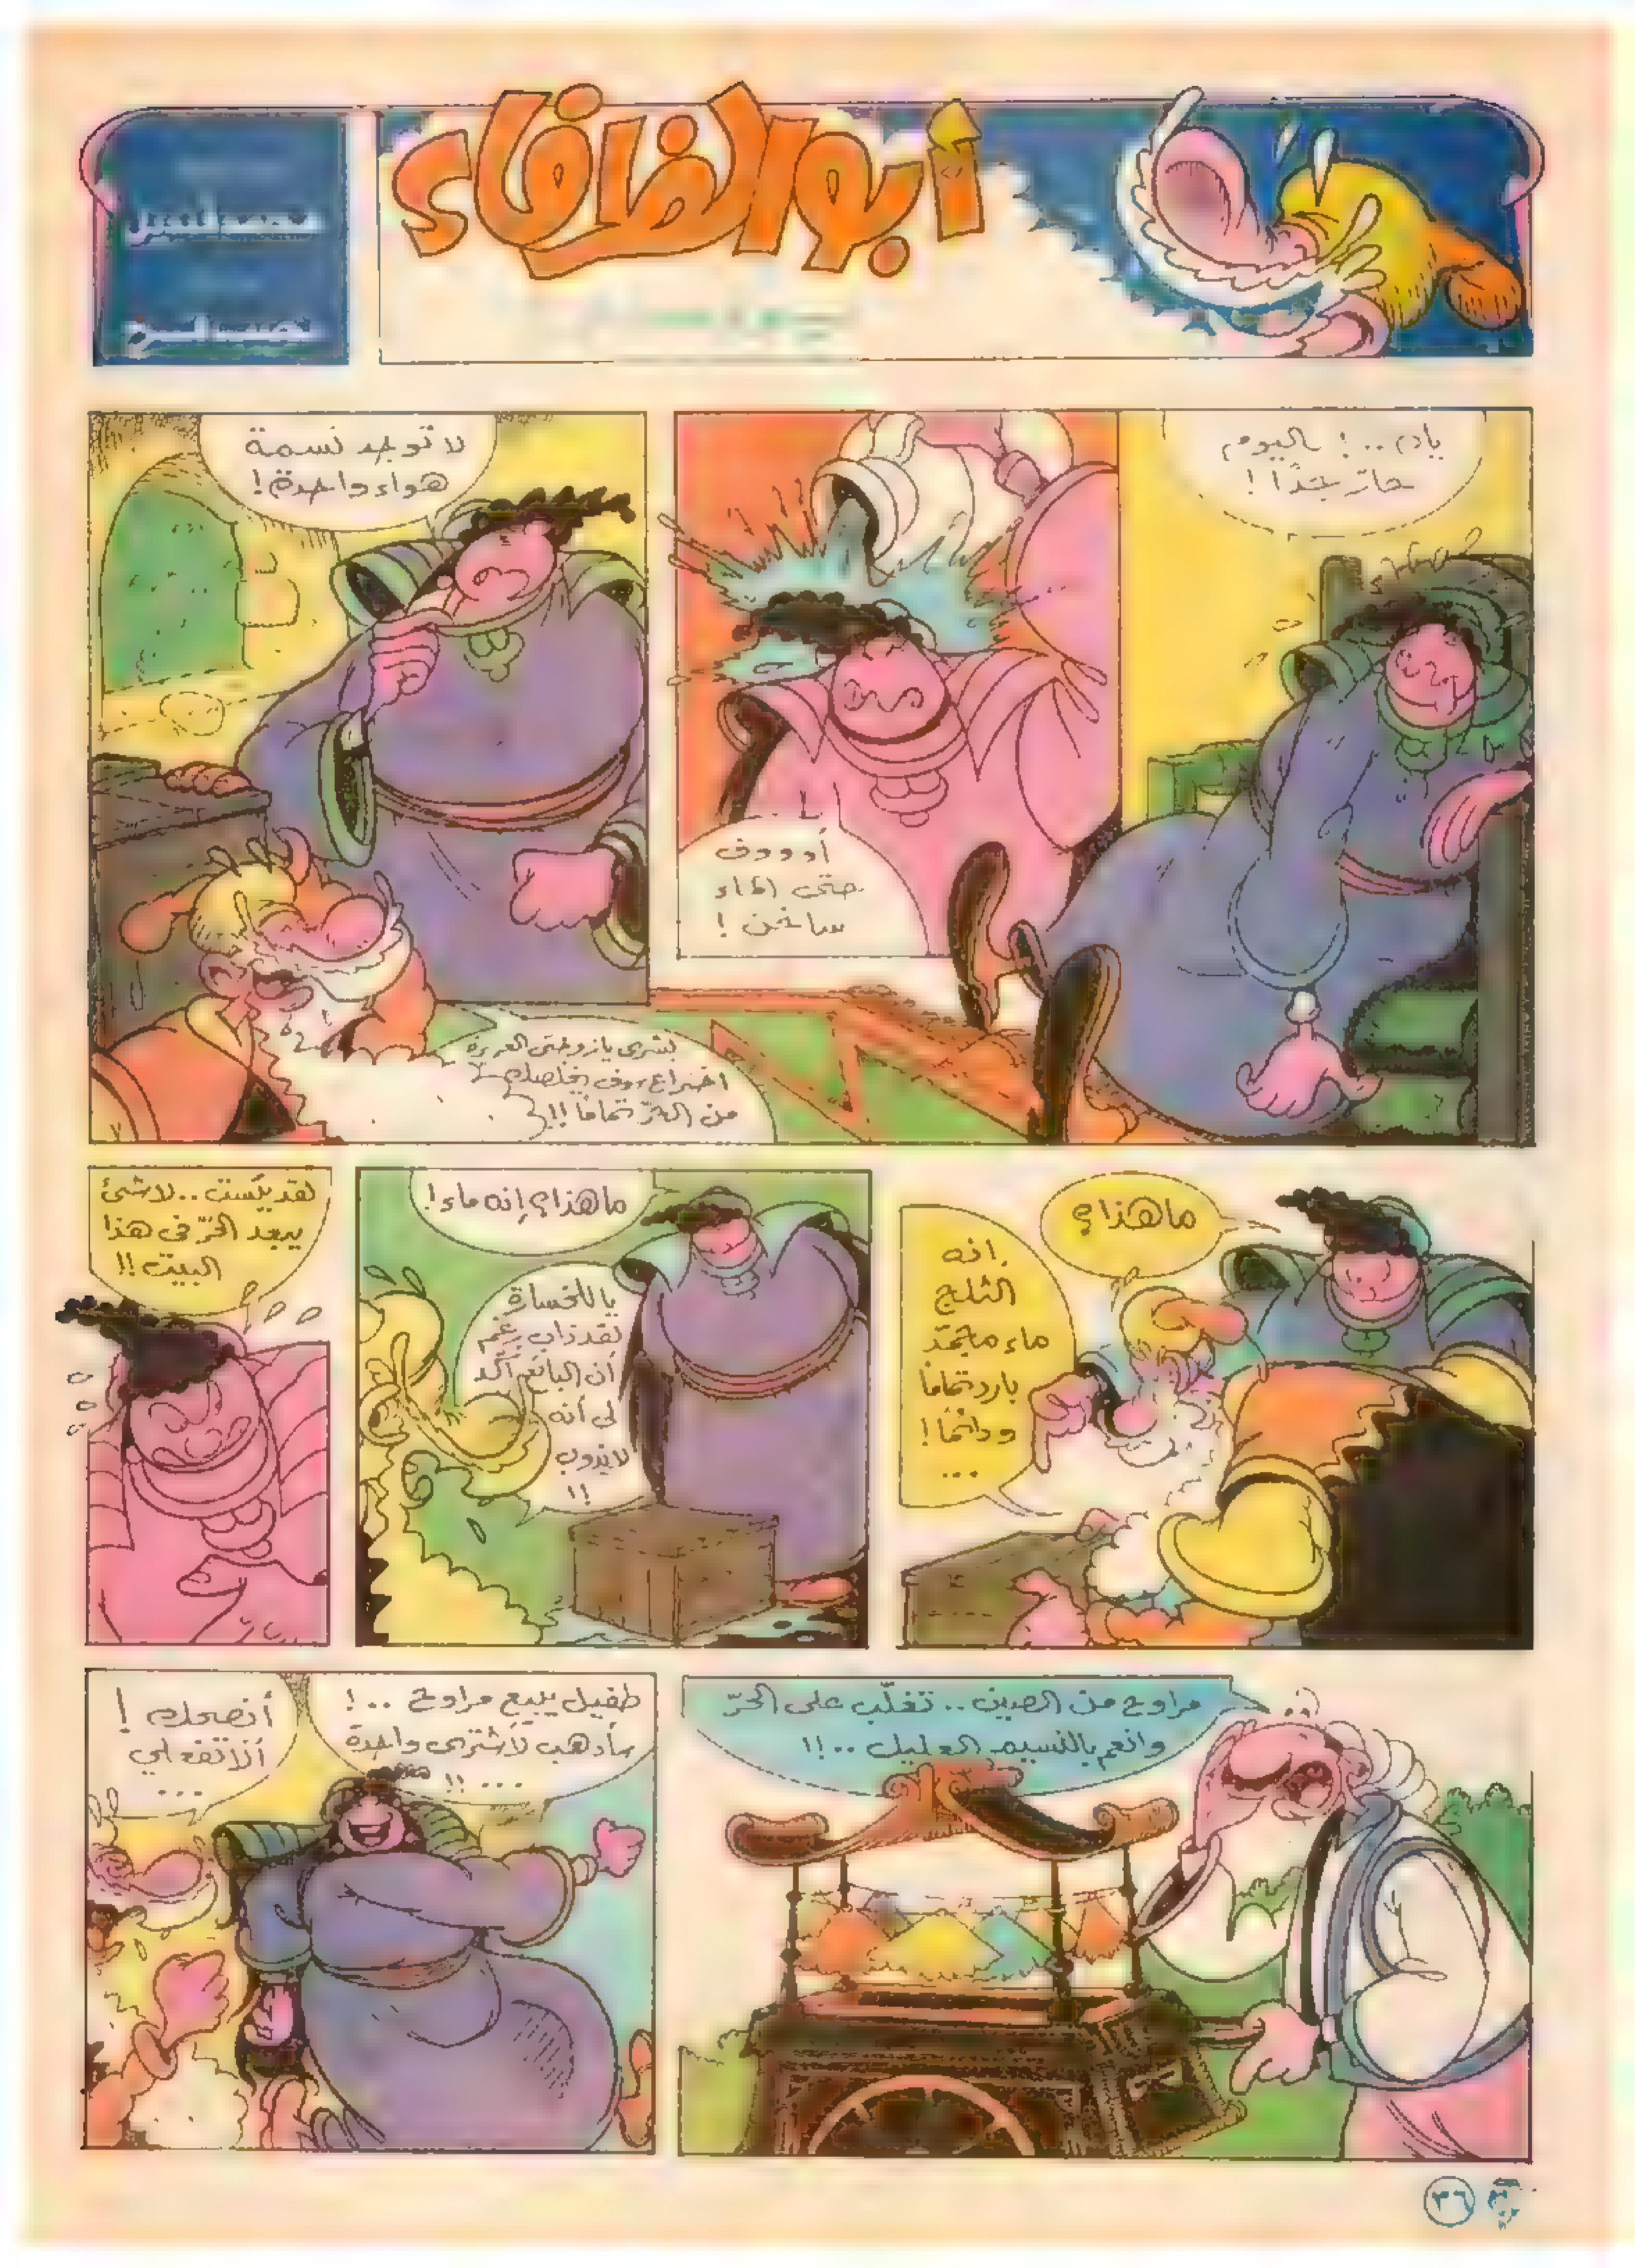 أبو الظرفاء
ياه..! اليوم
حارّ جدًا!
أوووف
حتى الماء
ساخن!
لا توجد نسمة
هواء واحدة!
بشرى يا زوجتى العزيزة
اختراع سوف يخلصك
من الحرّ تمامًا!!
ما هذا؟
إنه
الثلج
ماء مجمّد
بارد تمامًا
ودائمًا!
...
ما هذا؟ إنه ماء!
يا للخسارة
لقد ذاب رغم
أن البائع أكّد
لى أنه
لا يذوب
!!
لقد يئست.. لا شئ
يبعد الحرّ فى هذا
البيت!!
مراوح من الصين.. تغلّب على الحرّ
وانعم بالنسيم العليل..!!
طفيل يبيع مراوح..!
سأذهب لأشترى واحدة
...!!
أنصحك!
ألا تفعلى
...
٣٦